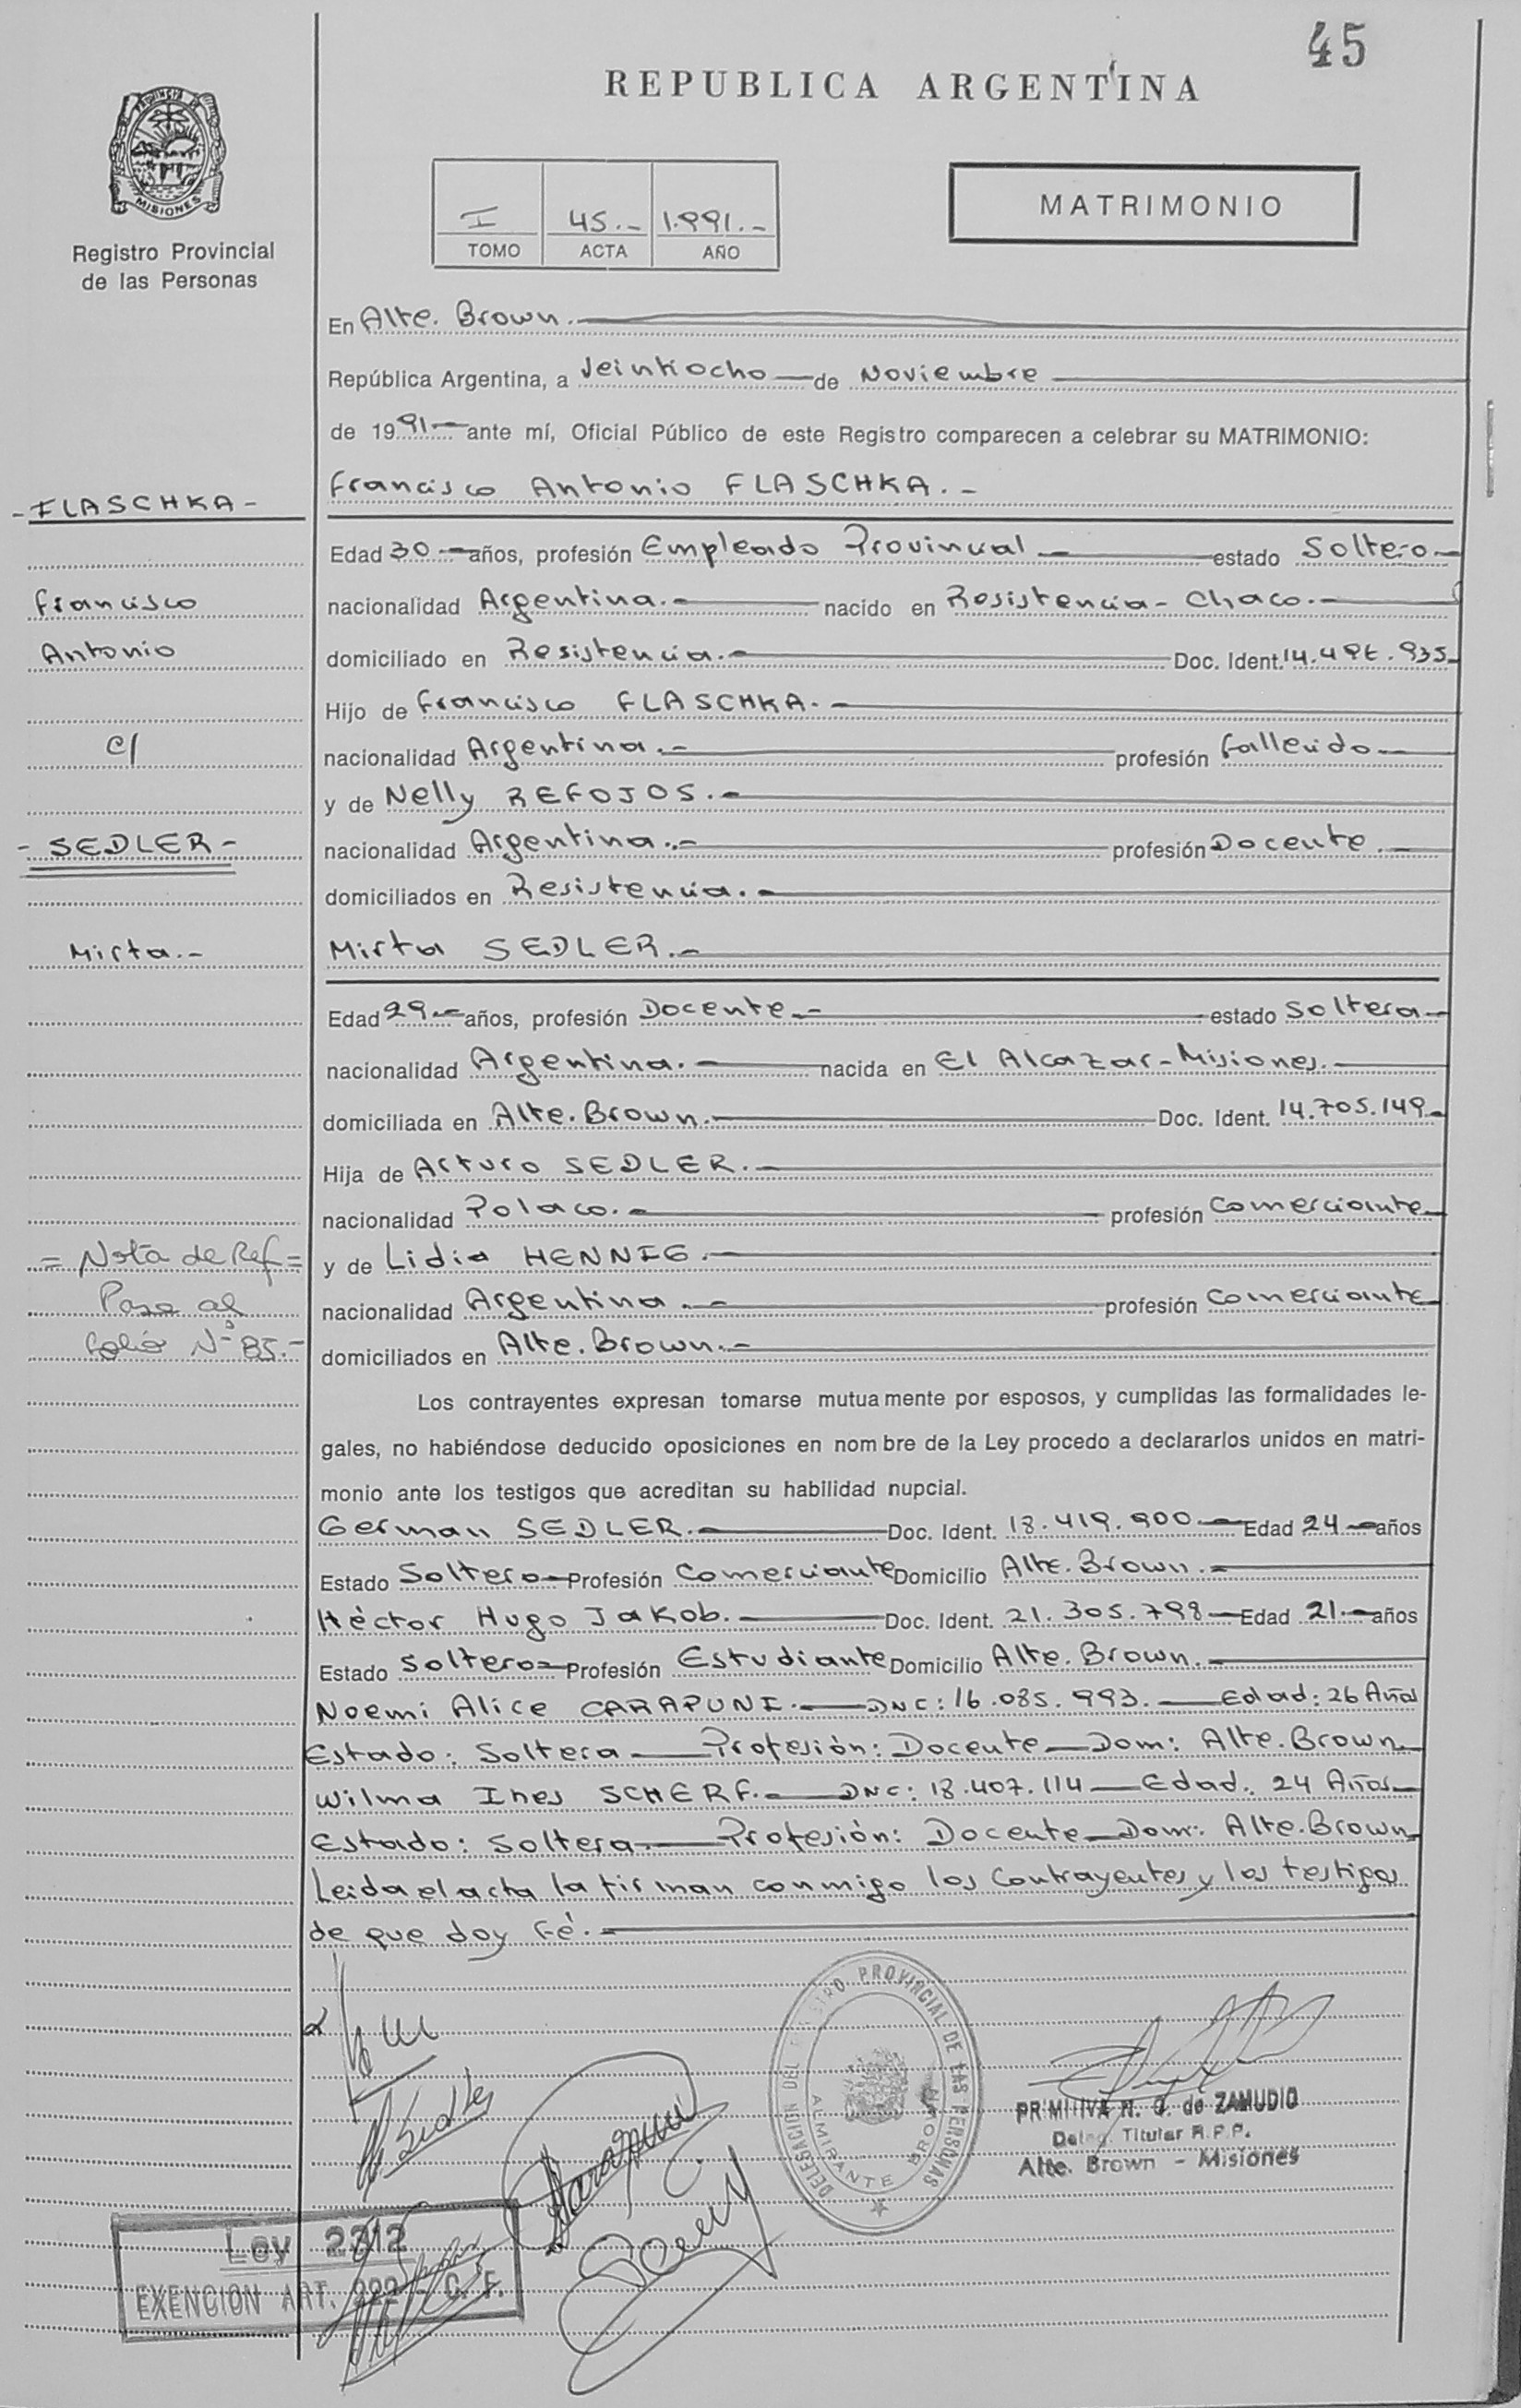 45
REPUBLICA ARGENTINA
PROVINCIA DE
MISIONES
Registro Provincial
de las Personas
I 45.- 1.991.-
TOMO ACTA AÑO
MATRIMONIO
En Alte. Brown.
República Argentina, a Veintiocho de Noviembre
de 1991- ante mí, Oficial Público de este Registro comparecen a celebrar su MATRIMONIO:
Francisco Antonio FLASCHKA.-
- FLASCHKA -
Edad 30.- años, profesión Empleado Provincial estado Soltero-
Francisco
nacionalidad Argentina.- nacido en Resistencia- Chaco.-
Antonio
domiciliado en Resistencia.- Doc. Ident. 935-
Hijo de Francisco FLASCHKA.-
C/
nacionalidad Argentina.- profesión fallecido
y de Nelly REFOJOS.-
- SEDLER -
nacionalidad Argentina.- profesión Docente.-
domiciliados en Resistencia.-
Mirta.-
Mirta SEDLER.-
Edad 29.- años, profesión Docente.- estado Soltera-
nacionalidad Argentina.- nacida en El Alcazar- Misiones.-
domiciliada en Alte. Brown.- Doc. Ident. 14.705.149-
Hija de Arturo SEDLER.-
nacionalidad Polaco.- profesión Comerciante
= Nota de Ref =
y de Lidia HENNIG.-
Pasa al
nacionalidad Argentina.- profesión Comerciante
folio N° 85.-
domiciliados en Alte. Brown.-
Los contrayentes expresan tomarse mutuamente por esposos, y cumplidas las formalidades le-
gales, no habiéndose deducido oposiciones en nombre de la Ley procedo a declararlos unidos en matri-
monio ante los testigos que acreditan su habilidad nupcial.
German SEDLER.- Doc. Ident. 18.419.900- Edad 24- años
Estado Soltero- Profesión Comerciante Domicilio Alte. Brown.-
Héctor Hugo Jakob.- Doc. Ident. 21.305.798- Edad 21.- años
Estado Soltero- Profesión Estudiante Domicilio Alte. Brown.-
Noemi Alice CARAPUNI.- DNC: 16.085.993.- Edad: 26 Años
Estado: Soltera- Profesión: Docente- Dom: Alte. Brown-
Wilma Ines SCHERF.- DNC: 18.407.114- Edad: 24 Años-
Estado: Soltera.- Profesión: Docente- Dom: Alte. Brown-
Leida el acta la firman conmigo los Contrayentes y los testigos
de que doy Fé.-
DELEGACION DEL REGISTRO PROVINCIAL DE LAS PERSONAS
ALMIRANTE BROWN
PRIMITIVA N. G. de ZAMUDIO
Deleg. Titular R.P.P.
Alte. Brown - Misiones
Ley 2312
EXENCION ART. 222 - C. F.